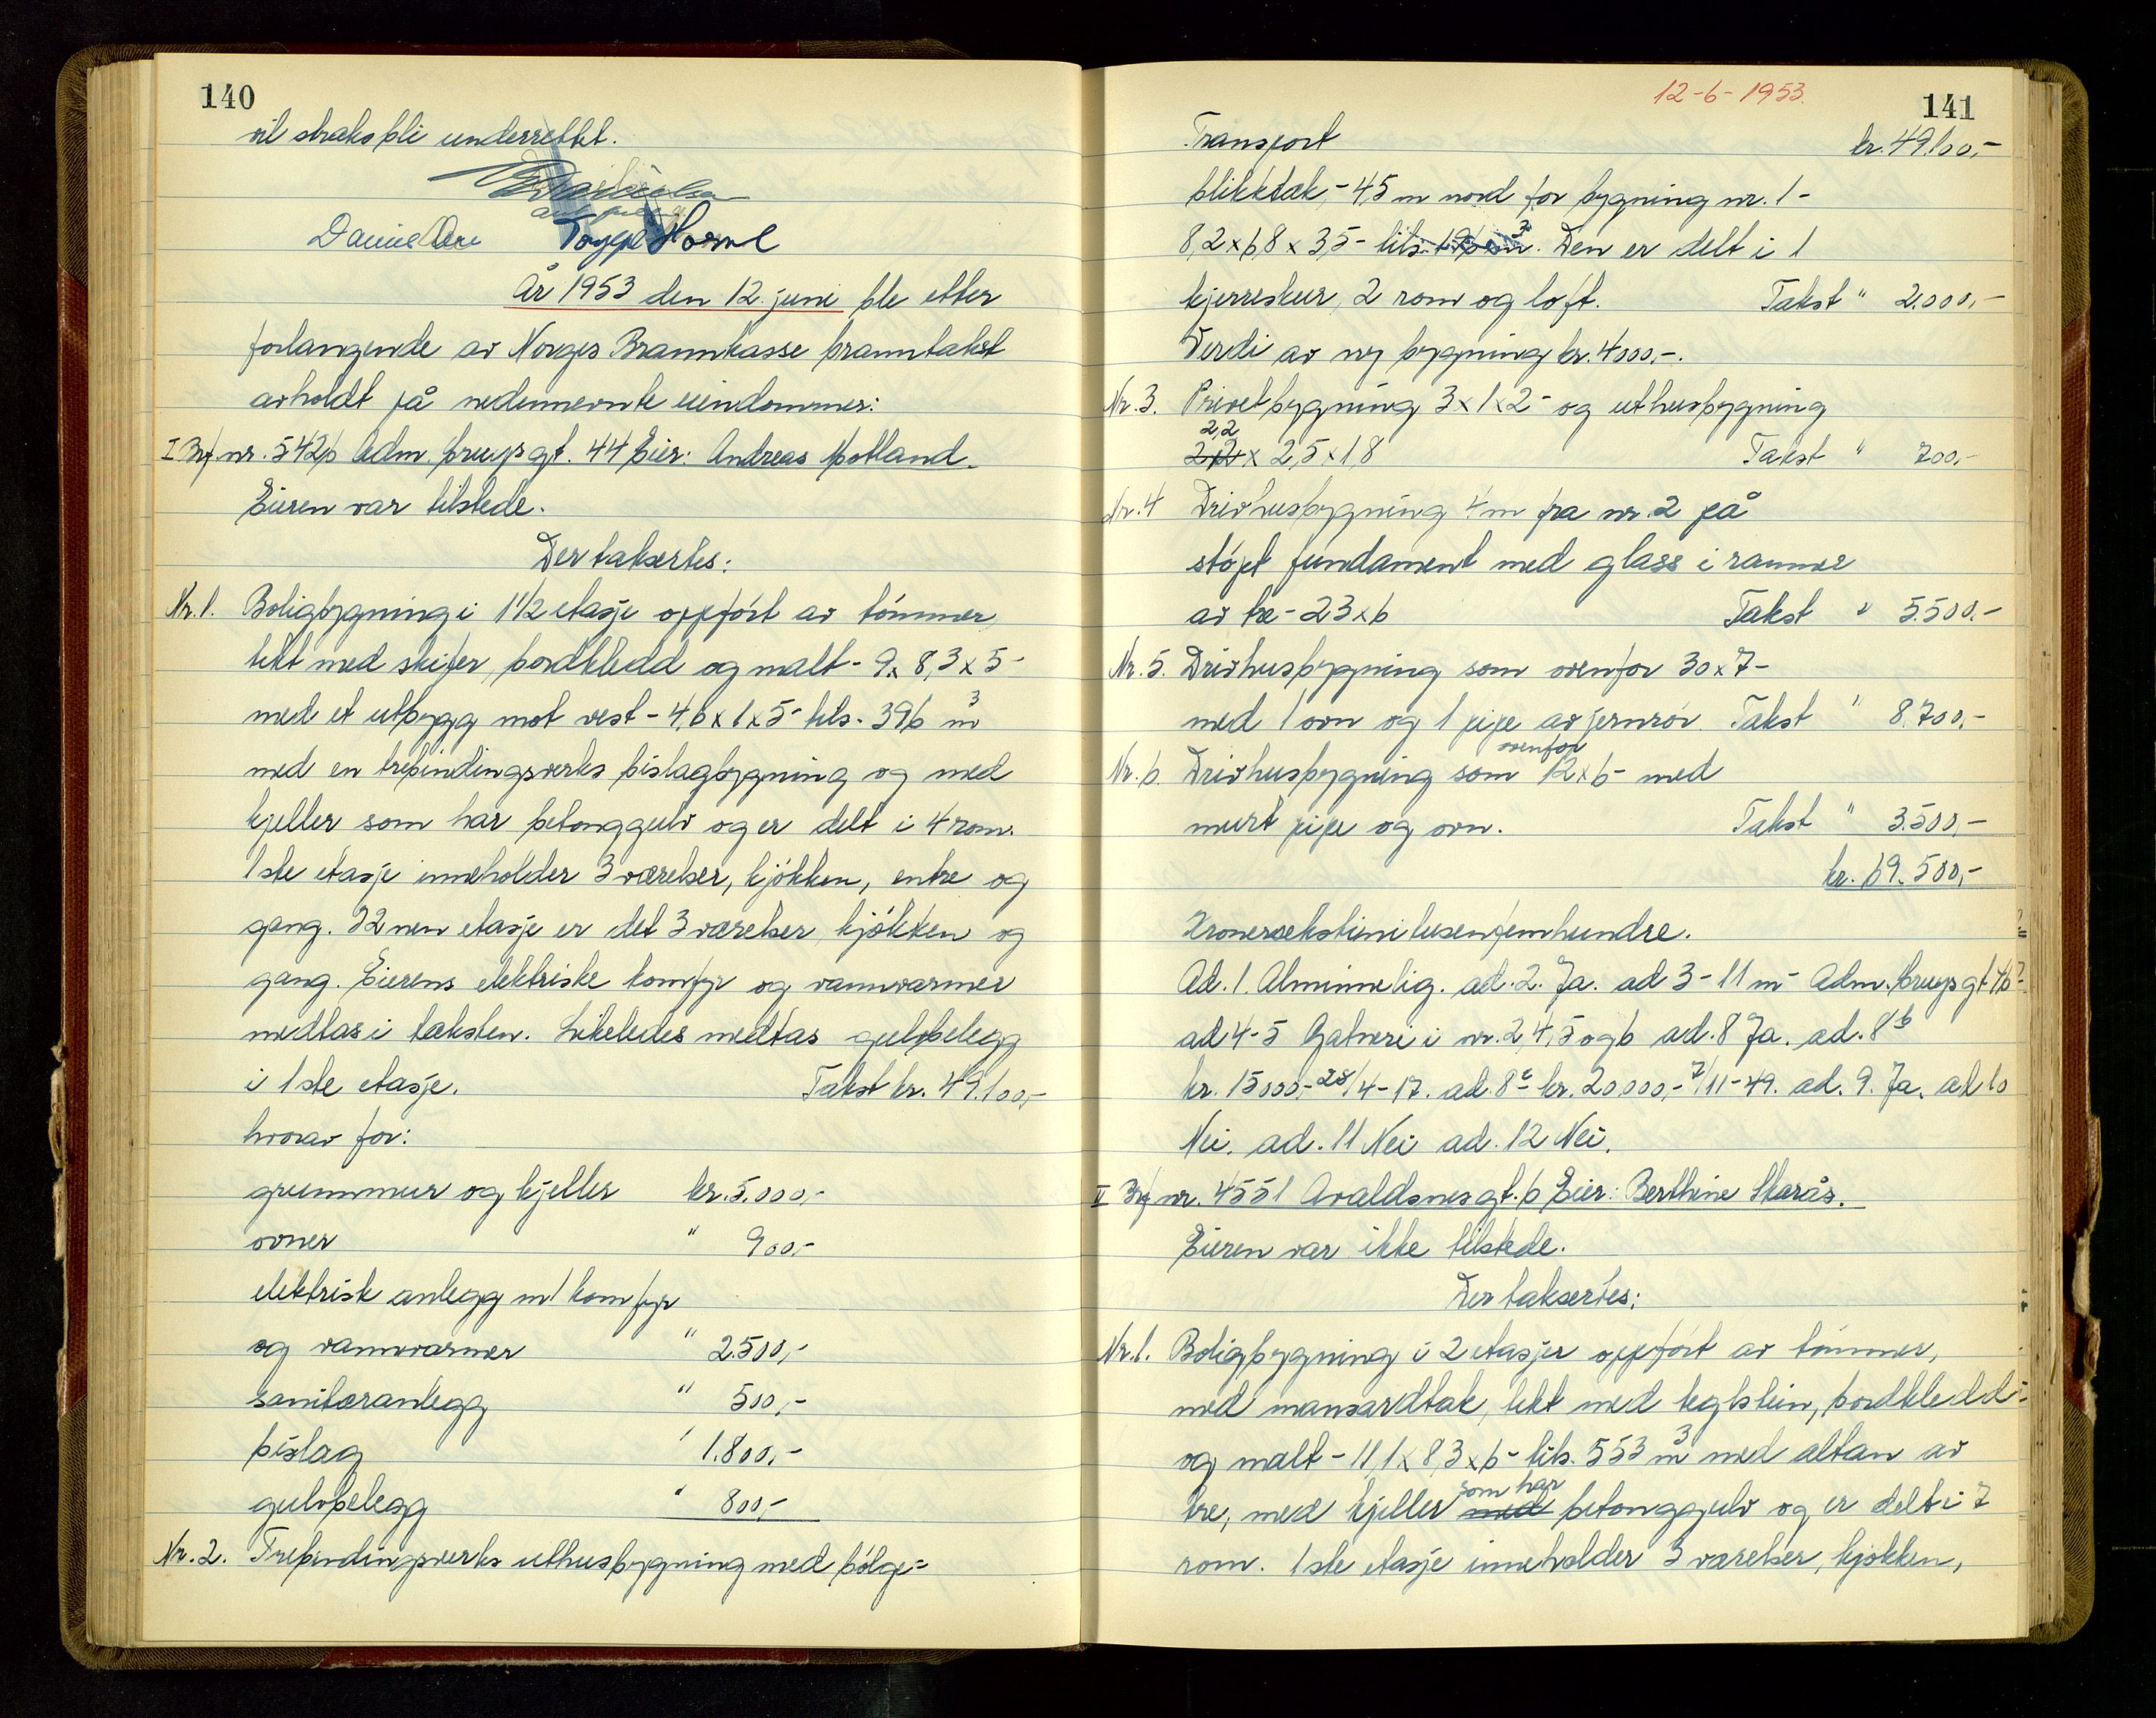 140
vil straks bli underrettet.
År 1953 den 12. juni ble etter
forlangende av Norges Brannkasse branntakst
avholdt på nedennevnte eiendommer:
I Brf. nr. 542b Adm. Cruysgt. 44 Eier: Andreas Botland.
Eieren var tilstede.
Der taksertes:
Nr. 1. Boligbygning i 1 1/2 etasje oppført av tømmer,
tekt med skifer, bordkledd og malt - 9 x 8,3 x 5 -
med et utbygg mot vest - 4,6 x 1 x 5 - tils. 396 m³
med en trebindingsverks bislagbygning og med
kjeller som har betonggulv og er delt i 4 rom.
1ste etasje inneholder 3 værelser, kjøkken, entre og
gang. I 2nen etasje er det 3 værelser, kjøkken og
gang. Eierens elektriske komfyr og vannvarmer
medtas i taksten. Likeledes medtas gulvbelegg
i 1ste etasje. Takst kr. 49.100,-
hvorav for:
grunnmur og kjeller kr. 5.000,-
ovner " 900,-
elektrisk anlegg m/komfyr
og vannvarmer " 2.500,-
sanitæranlegg " 500,-
bislag " 1.800,-
gulvbelegg " 800,-
Nr. 2. Trebindingsverks uthusbygning med bølge=
12-6-1953.
141
Transport kr. 49.100,-
blikktak - 4,5 m nord for bygning nr. 1 -
8,2 x 6,8 x 3,5 - tils. 196 m³. Den er delt i 1
kjerreskur, 2 rom og loft. Takst " 2.000,-
Verdi av ny bygning kr. 4000,-.
Nr. 3. Privetbygning 3 x 1 x 2 - og uthusbygning
2,2
2,2 x 2,5 x 1,8 Takst " 700,-
Nr. 4 Drivhusbygning 4 m fra nr. 2 på
støpt fundament med glass i rammer
av tre - 23 x 6 Takst " 5.500.-
Nr. 5. Drivhusbygning som ovenfor 30 x 7 -
med 1 ovn og 1 pipe av jernrør. Takst " 8.700,-
Nr. 6. Drivhusbygning som ovenfor 12 x 6 - med
murt pipe og ovn. Takst " 3.500,-
kr. 69.500,-
Kronersekstinitusenfemhundre.
Ad. 1. Alminnelig. ad. 2. Ja. ad 3 - 11 m - Adm. Cruysgt. 46
ad 4-5 Gartneri i nr. 2, 4, 5 og 6 ad. 8 Ja. ad. 8 b
kr. 15000,- 28/4-17. ad. 8 c kr. 20.000,- 7/11-49. ad. 9. Ja. ad 10
Nei. ad. 11 Nei ad. 12 Nei.
II Brf nr. 4551 Avaldsnesgt. 6 Eier: Berthine Skarås.
Eieren var ikke tilstede.
Der taksertes:
Nr. 1. Boligbygning i 2 etasjer oppført av tømmer,
med mansardtak, tekt med teglstein, bordkledd
og malt - 11,1 x 8,3 x 6 - tils. 553 m³ med altan av
tre, med kjeller med som har betonggulv og er delt i 7
rom. 1ste etasje inneholder 3 værelser, kjøkken,